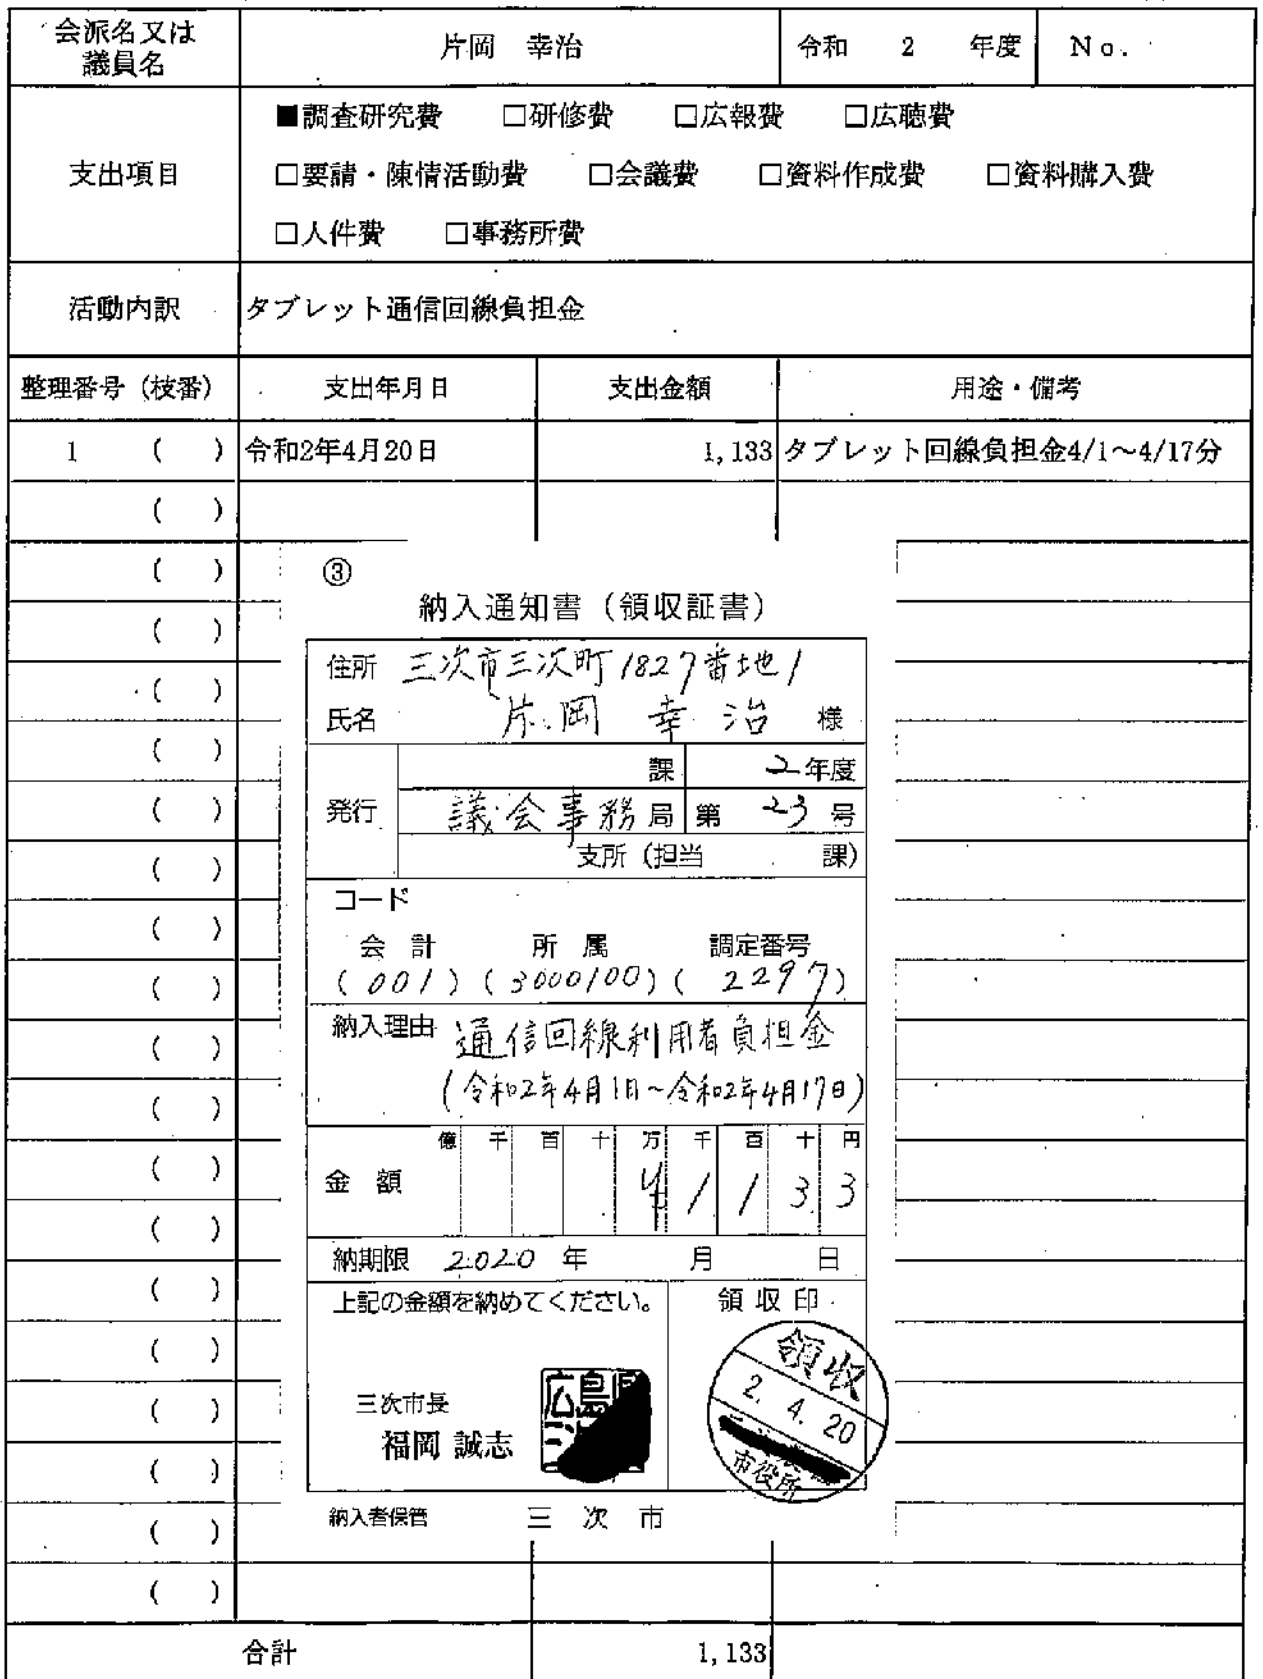 会派名又は
議員名
片岡 幸治
令和 2 年度
No.
支出項目
■調査研究費 □研修費 □広報費 □広聴費
□要請・陳情活動費 □会議費 □資料作成費 □資料購入費
□人件費 □事務所費
活動内訳
タブレット通信回線負担金
整理番号(枝番) 支出年月日 支出金額 用途・備考
1 ( ) 令和2年4月20日 1,133 タブレット回線負担金4/1～4/17分
( )
( )
( )
( )
( )
( )
( )
( )
( )
( )
( )
( )
( )
( )
( )
( )
( )
( )
( )
③
納入通知書(領収証書)
住所 三次市三次町1827番地1
氏名 片岡 幸治 様
発行
課 2年度
議会事務局 第 23 号
支所(担当 課)
コード
会計 所属 調定番号
(001)(3000100)(2297)
納入理由 通信回線利用者負担金
(令和2年4月1日～令和2年4月17日)
億 千 百 十 万 千 百 十 円
金額 ¥1133
納期限 2020 年 月 日
上記の金額を納めてください。
領収印
三次市長
福岡 誠志
広島県
領収
2. 4. 20
市役所
納入者保管 三次市
合計 1,133